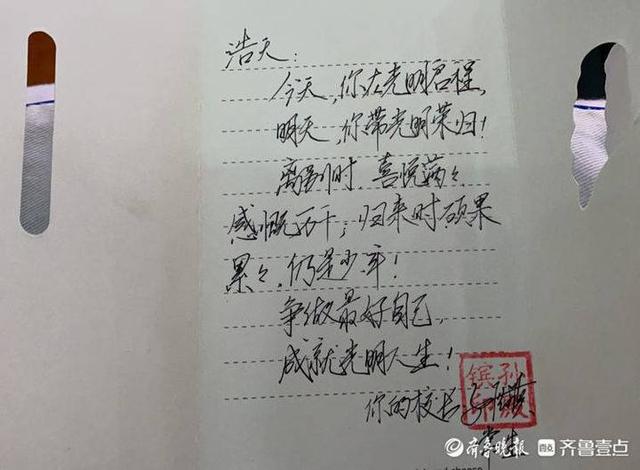 浩天：
今天，你从光明启程，
明天，你带光明荣归！
离别时，喜悦满々，
感慨万千；归来时硕果
累々，仍是少年！
争做最好自己，
成就光明人生！
你的校长：
齐鲁晚报 齐鲁壹点